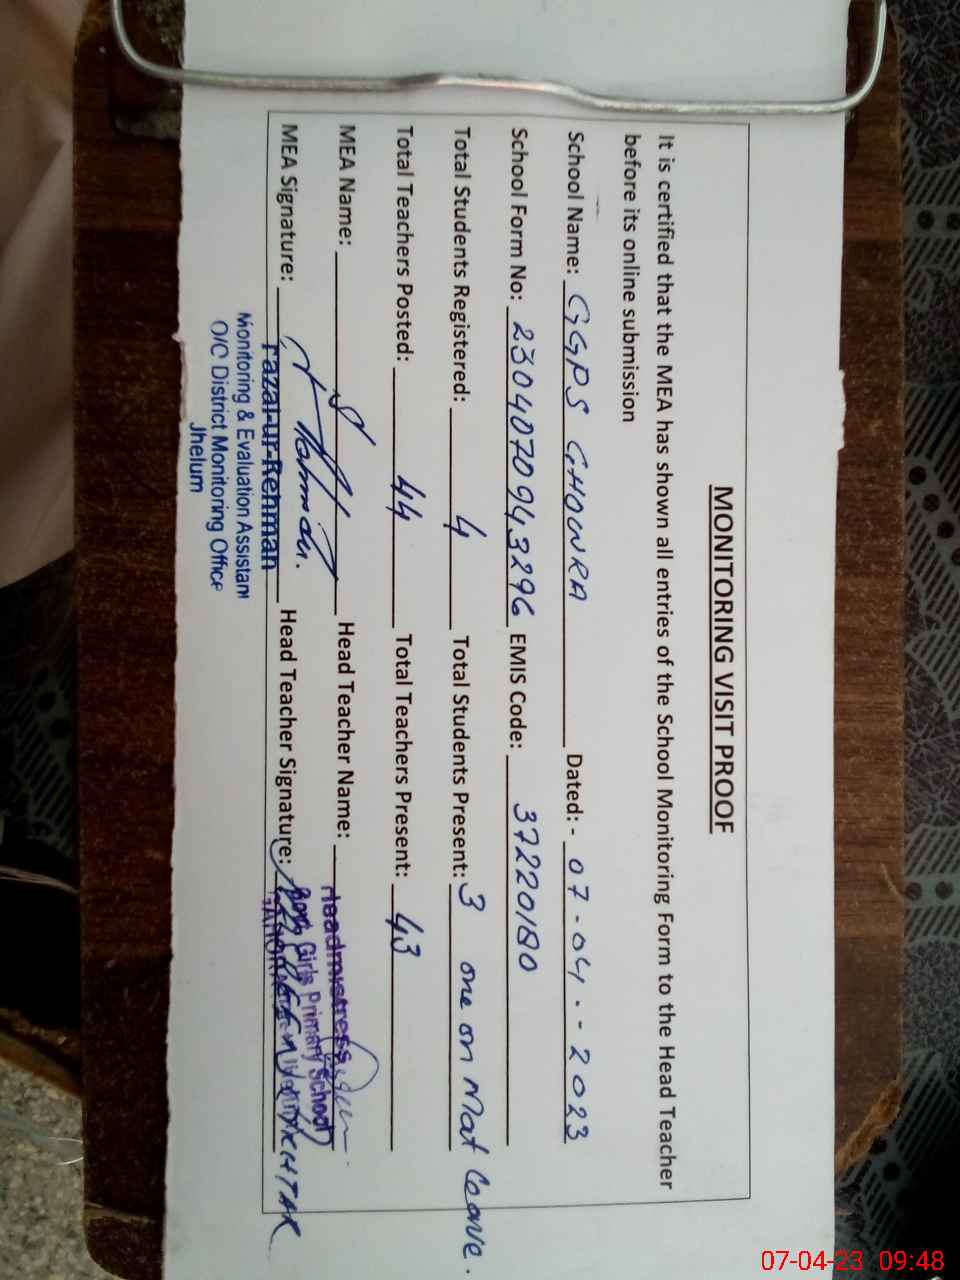 MONITORING VISIT PROOF
It is certified that the MEA has shown all entries of the School Monitoring Form to the Head Teacher
before its online submission
School Name: GGPS GHOURA Dated: - 07-04-2023
School Form No: 2304070943296 EMIS Code: 37220180
Total Students Registered: 4 Total Students Present: 3 one on Mat Leave.
Total Teachers Posted: 44 Total Teachers Present: 43
MEA Name: Head Teacher Name: Headmistress
MEA Signature: Head Teacher Signature:
Girls Primary School
Fazal-ur-Rehman
Monitoring & Evaluation Assistant
O/C District Monitoring Office
Jhelum
07-04-23 09:48